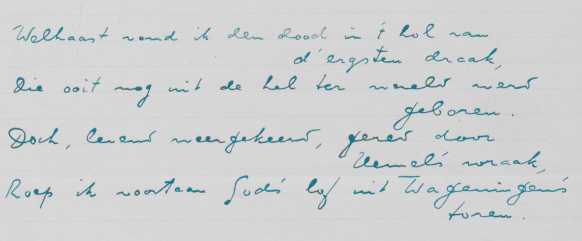 Welhaast vond ik den dood in 't hol van
d'ergsten draak,
Die ooit nog uit de hel ter wereld werd
geboren.
Doch, levend weergekeerd, gered door
Hemels wraak,
Roep ik voortaan Gods lof uit Wageningens
toren.